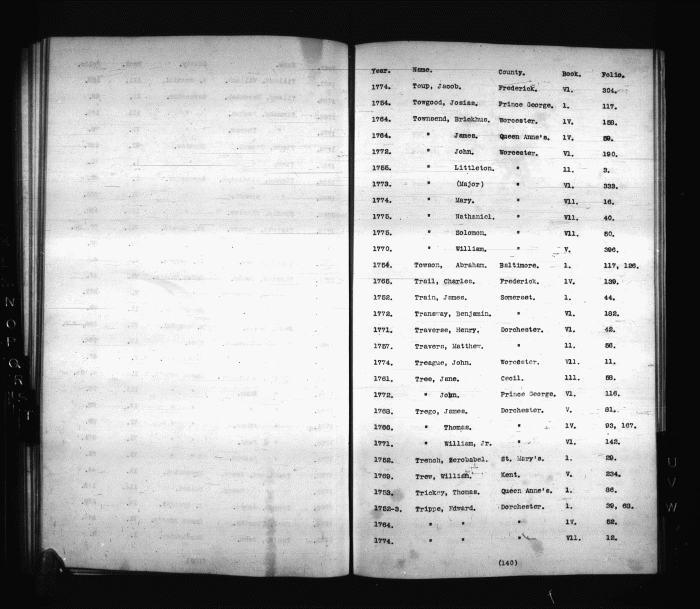 Year. Name. County. Book. Folio.
1774. Toup, Jacob. Frederick. V1. 304.
1754. Towgood, Josias. Prince George. 1. 117.
1764. Townsend, Brickhus. Worcester. 1V. 158.
1764. " James. Queen Anne's. 1V. 59.
1772. " John. Worcester. V1. 190.
1755. " Littleton. " 11. 3.
1773. " (Major) " V1. 333.
1774. " Mary. " V11. 16.
1775. " Nathaniel. " V11. 40.
1775. " Solomon. " V11. 50.
1770. " William. " V. 396.
1754. Towson, Abraham. Baltimore. 1. 117, 126.
1765. Trail, Charles. Frederick. 1V. 139.
1752. Train, James. Somerset. 1. 44.
1772. Transway, Benjamin. " V1. 182.
1771. Traverse, Henry. Dorchester. V1. 42.
1757. Travers, Matthew. " 11. 56.
1774. Treague, John. Worcester. V11. 11.
1761. Tree, Jane. Cecil. 111. 58.
1772. " John. Prince George. V1. 116.
1768. Trego, James. Dorchester. V. 81.
1766. " Thomas. " 1V. 93, 167.
1771. " William, Jr. " V1. 142.
1752. Trench, Zerobabel. St. Mary's. 1. 29.
1769. Trew, William. Kent. V. 234.
1753. Trickey, Thomas. Queen Anne's. 1. 86.
1752-3. Trippe, Edward. Dorchester. 1. 39, 63.
1764. " " " 1V. 52.
1774. " " " V11. 12.
(140)
U
V
W